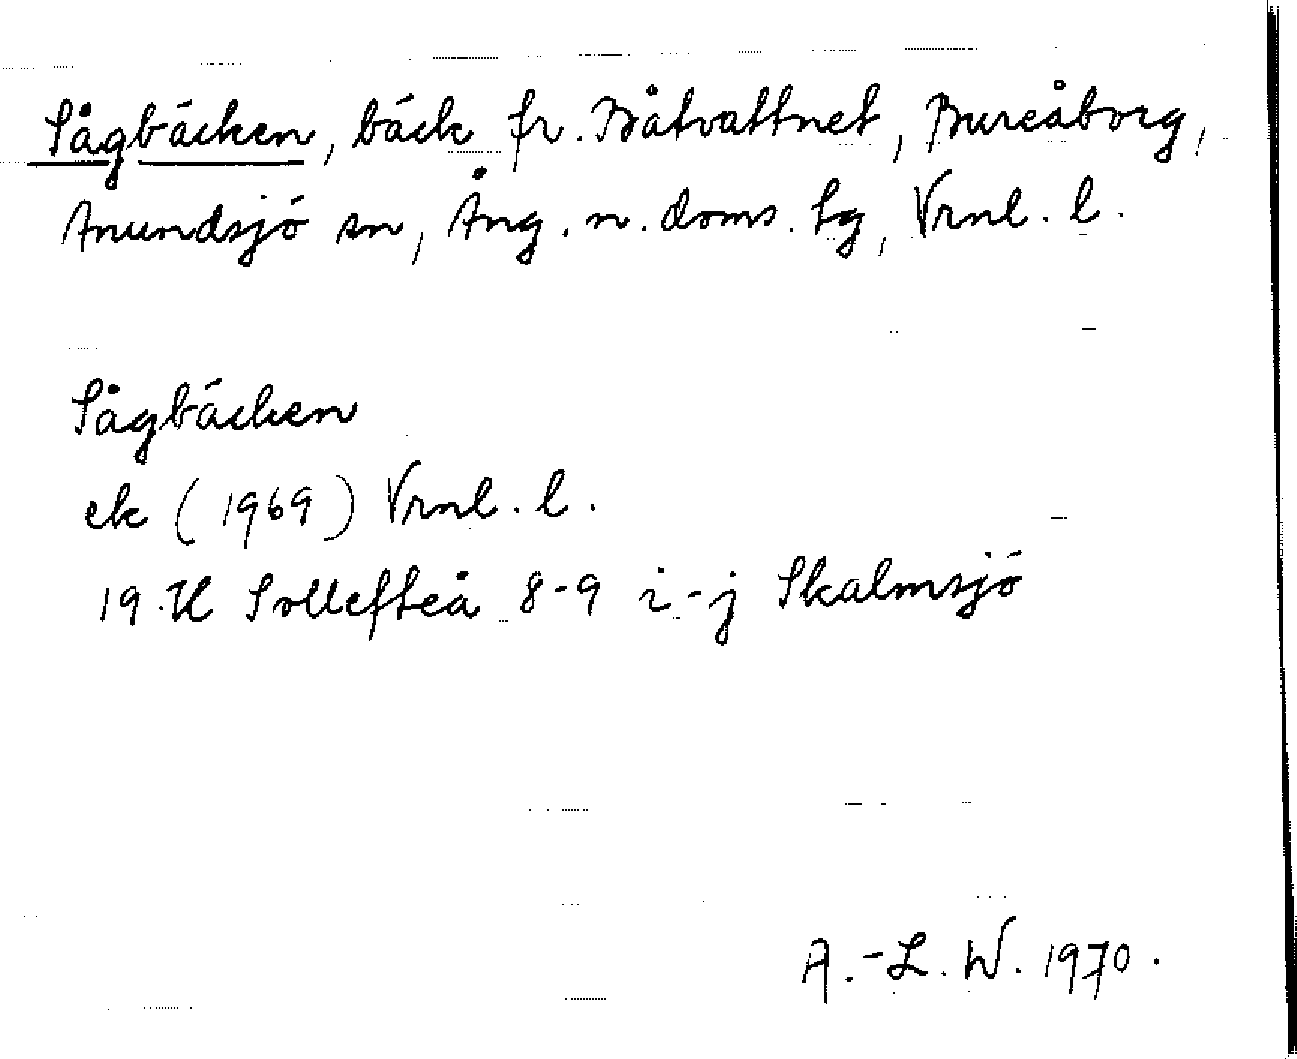 Sågbäcken, bäck fr. Båtvattnet, Bureåborg,
Anundsjö sn, Ång. n. doms. tg, Vrnl. l.
Sågbäcken
ek (1969) Vrnl. l.
19 H Sollefteå 8-9 i-j Skalmsjö
A.-L. W. 1970.